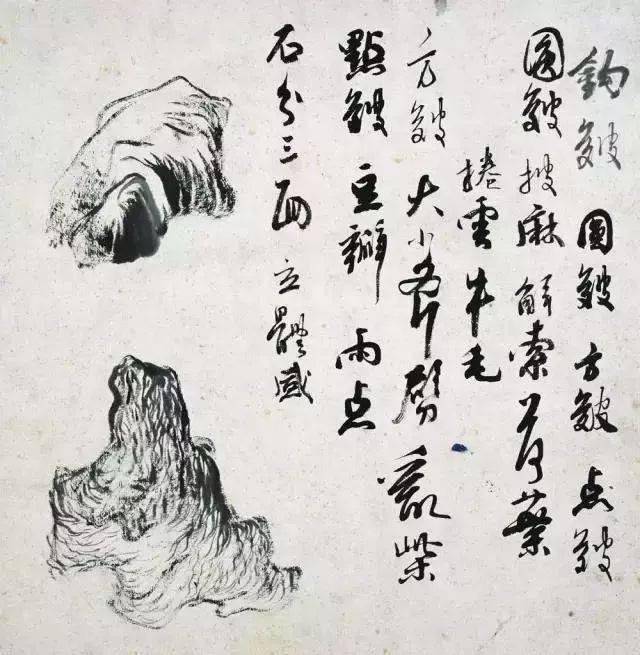 鈎皴 圓皴 方皴 点皴
圓皴 披麻 解索 荷葉
捲雲 牛毛
方皴 大小斧劈 亂柴
點皴 豆瓣 雨点
石分三面 立體感